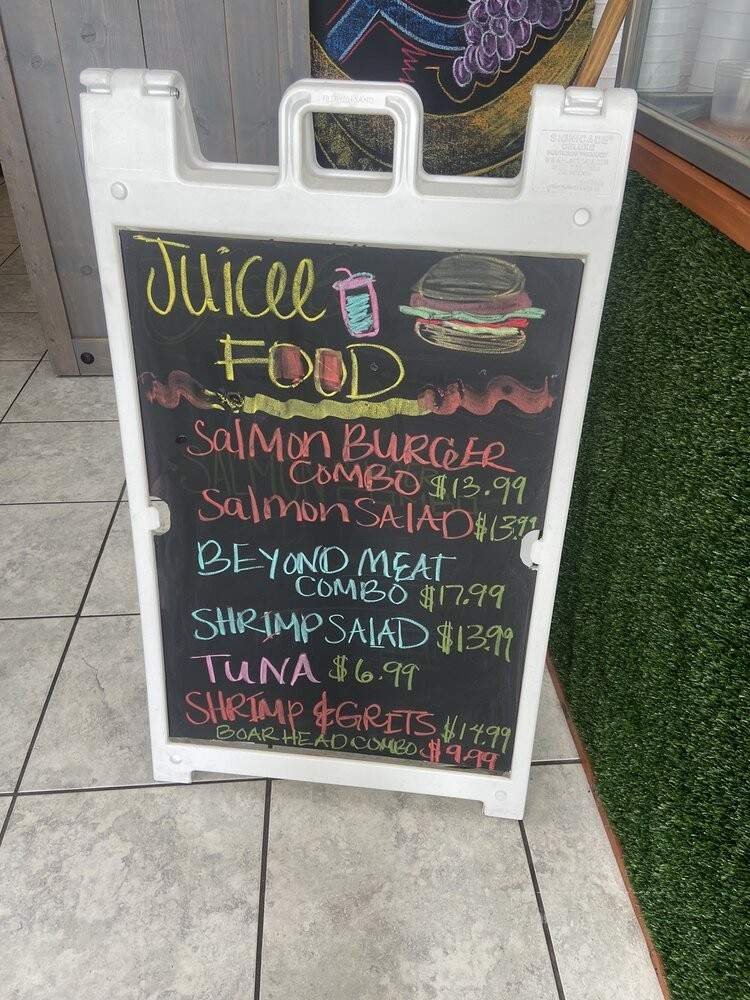 SIGNICADE
DELUXE
JUICEE
FOOD
SalMon BURGER
COMBO $13.99
Salmon SALAD $13.99
BEYOND MEAT
COMBO $17.99
SHRIMP SALAD $13.99
TUNA $6.99
SHRIMP & GRETS $14.99
BOAR HEAD COMBO $9.99